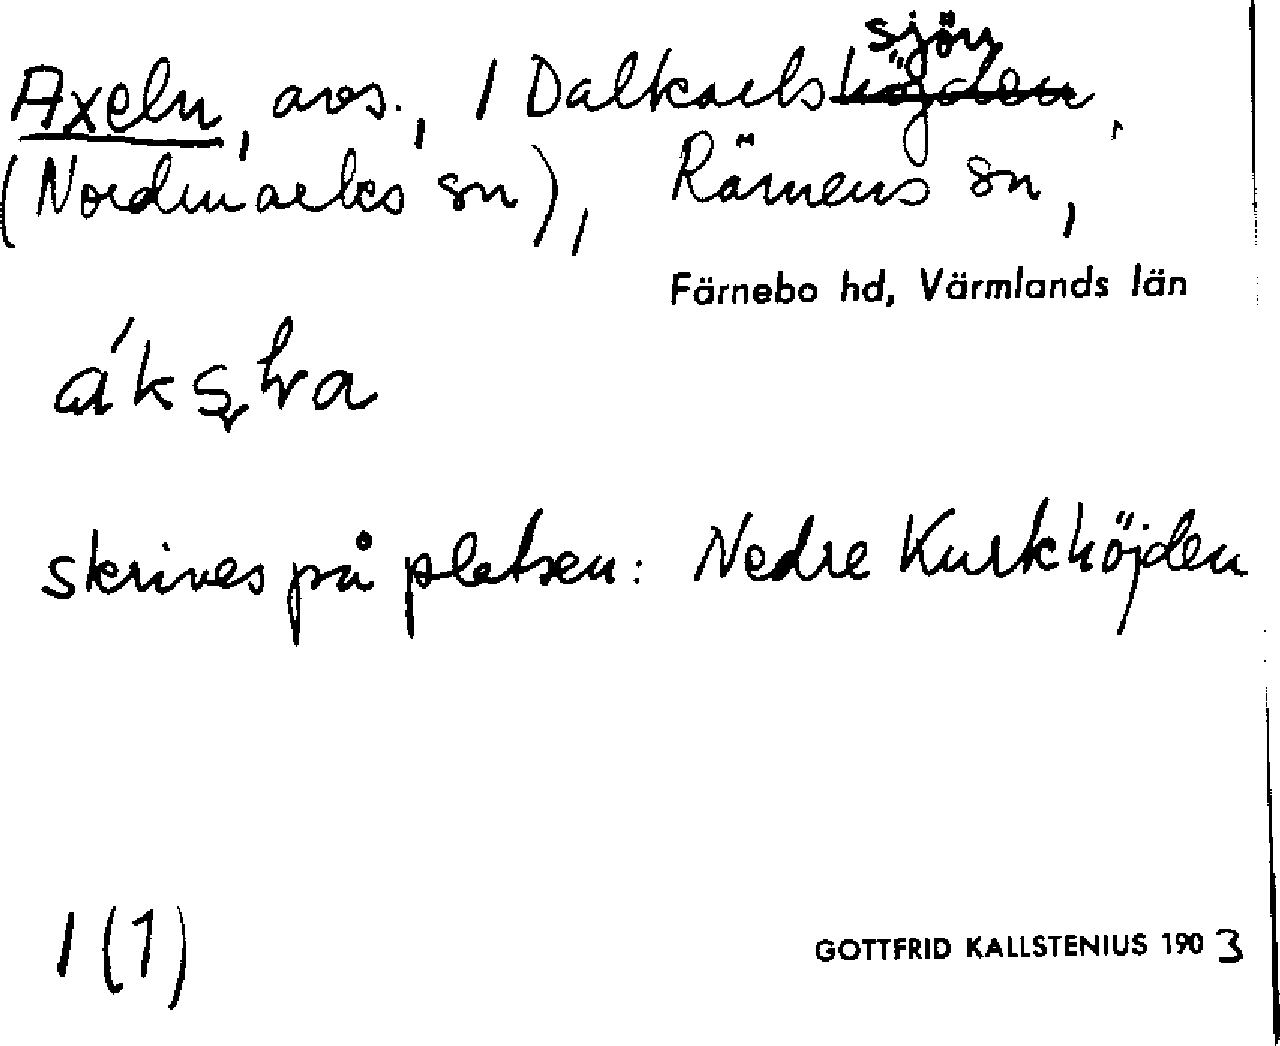 Axeln, avs., 1 Dalkarlshöjden sjön,
(Nordmarks sn), Rämens sn,
Färnebo hd, Värmlands län
skrives på platsen: Nedre Kurkhöjden
1 (1)
GOTTFRID KALLSTENIUS 1903